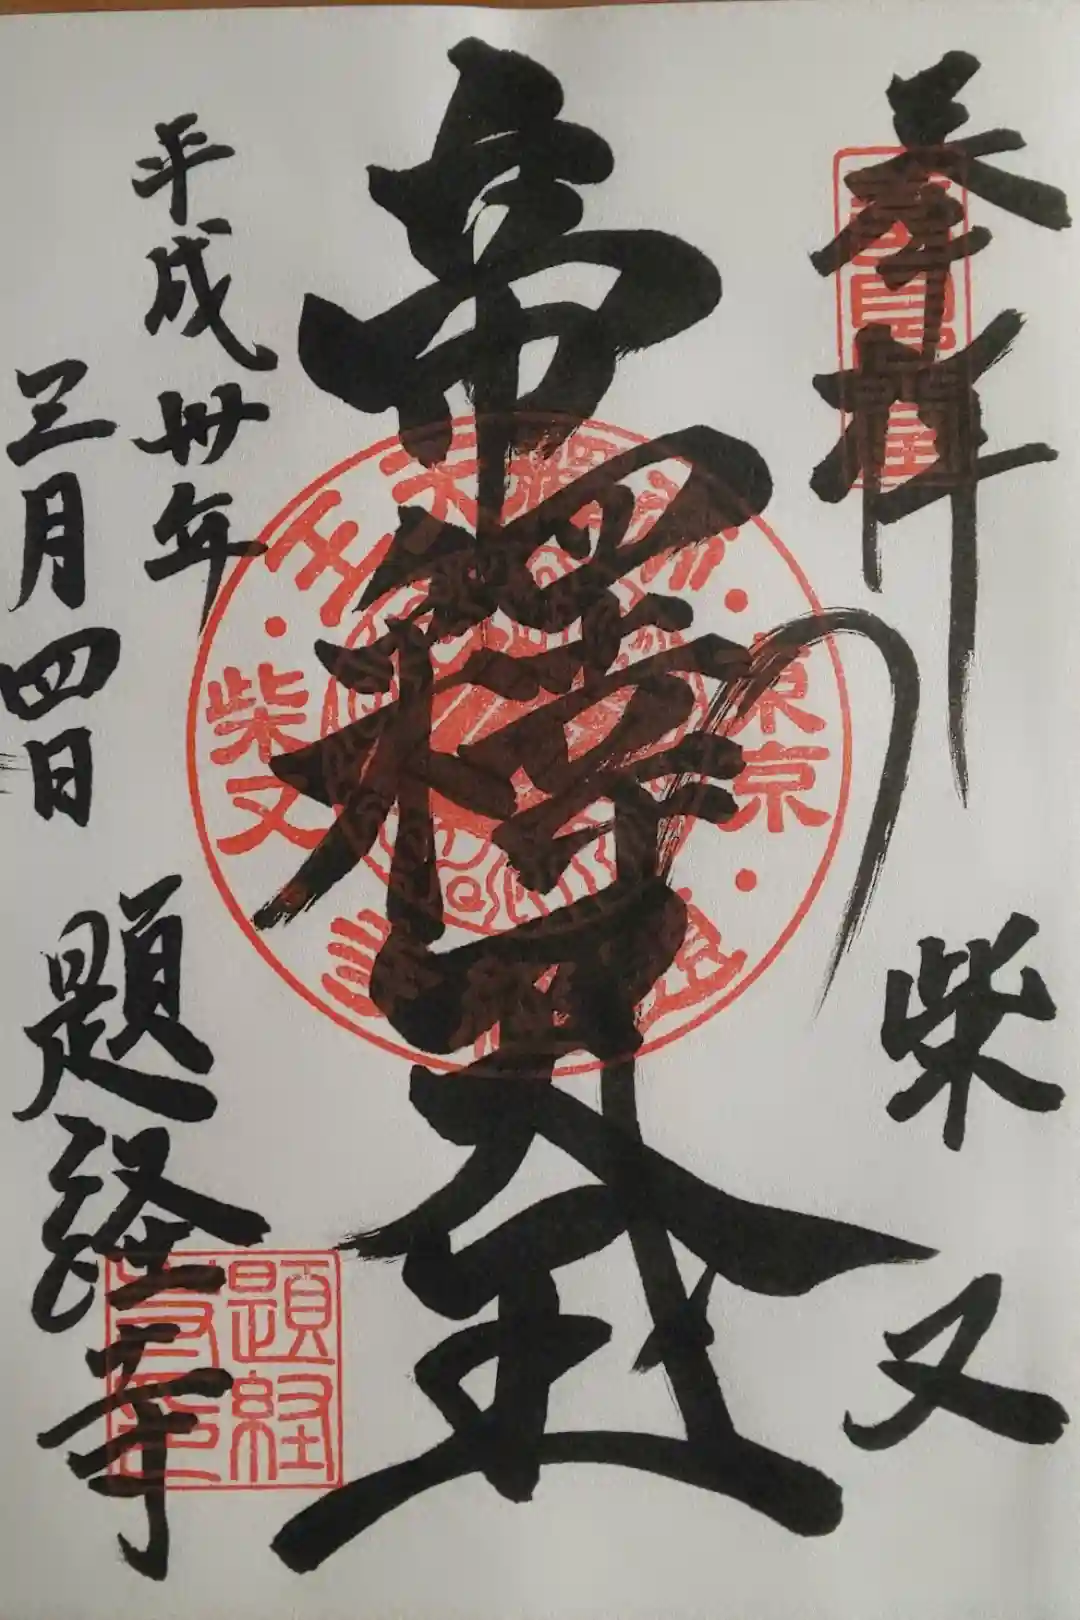 奉拝
柴又
帝釋天王
平成卅年
三月四日
題経寺
東京
柴又
題経